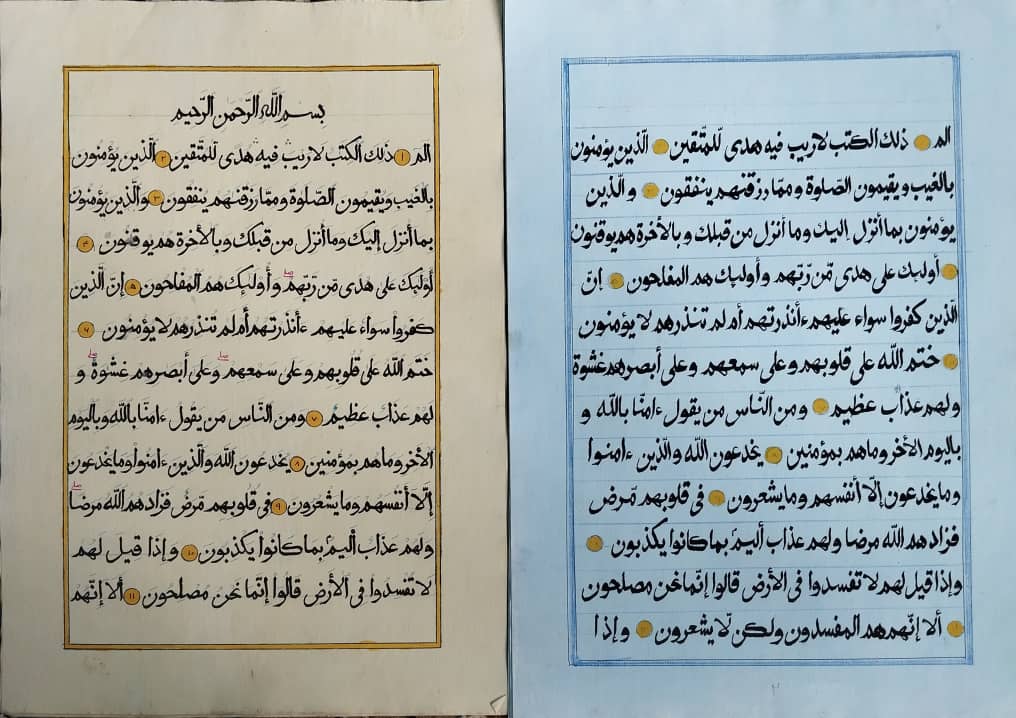 بِسْمِ اللَّهِ الرَّحْمَنِ الرَّحِيمِ
الم ١ ذلك الكتب لا ريب فيه هدى لّلمتّقين ٢ الّذين يؤمنون
بالغيب ويقيمون الصّلوة وممّا رزقنهم ينفقون ٣ والّذين يؤمنون
بما أنزل إليك وما أنزل من قبلك وبالأخرة هم يوقنون ٤
أولئك على هدى مّن رّبّهم وأولئك هم المفلحون ٥ إنّ الّذين
كفروا سواء عليهم ءأنذرتهم أم لم تنذرهم لا يؤمنون ٦
ختم الله على قلوبهم وعلى سمعهم وعلى أبصرهم غشوة و
لهم عذاب عظيم ٧ ومن النّاس من يقول ءامنّا بالله وباليوم
الأخر وما هم بمؤمنين ٨ يخدعون الله والّذين ءامنوا وما يخدعون
إلّا أنفسهم وما يشعرون ٩ في قلوبهم مّرض فزادهم الله مرضا
ولهم عذاب أليم بما كانوا يكذبون ١٠ وإذا قيل لهم
لا تفسدوا في الأرض قالوا إنّما نحن مصلحون ١١ ألا إنّهم
الم ذلك الكتب لا ريب فيه هدى لّلمتّقين الّذين يؤمنون
بالغيب ويقيمون الصّلوة وممّا رزقنهم ينفقون والّذين
يؤمنون بما أنزل إليك وما أنزل من قبلك وبالأخرة هم يوقنون
أولئك على هدى مّن رّبّهم وأولئك هم المفلحون إنّ
الّذين كفروا سواء عليهم ءأنذرتهم أم لم تنذرهم لا يؤمنون
ختم الله على قلوبهم وعلى سمعهم وعلى أبصرهم غشوة
ولهم عذاب عظيم ومن النّاس من يقول ءامنّا بالله و
باليوم الأخر وما هم بمؤمنين يخدعون الله والّذين ءامنوا
وما يخدعون إلّا أنفسهم وما يشعرون في قلوبهم مّرض
فزادهم الله مرضا ولهم عذاب أليم بما كانوا يكذبون
وإذا قيل لهم لا تفسدوا في الأرض قالوا إنّما نحن مصلحون
ألا إنّهم هم المفسدون ولكن لّا يشعرون وإذا
٢